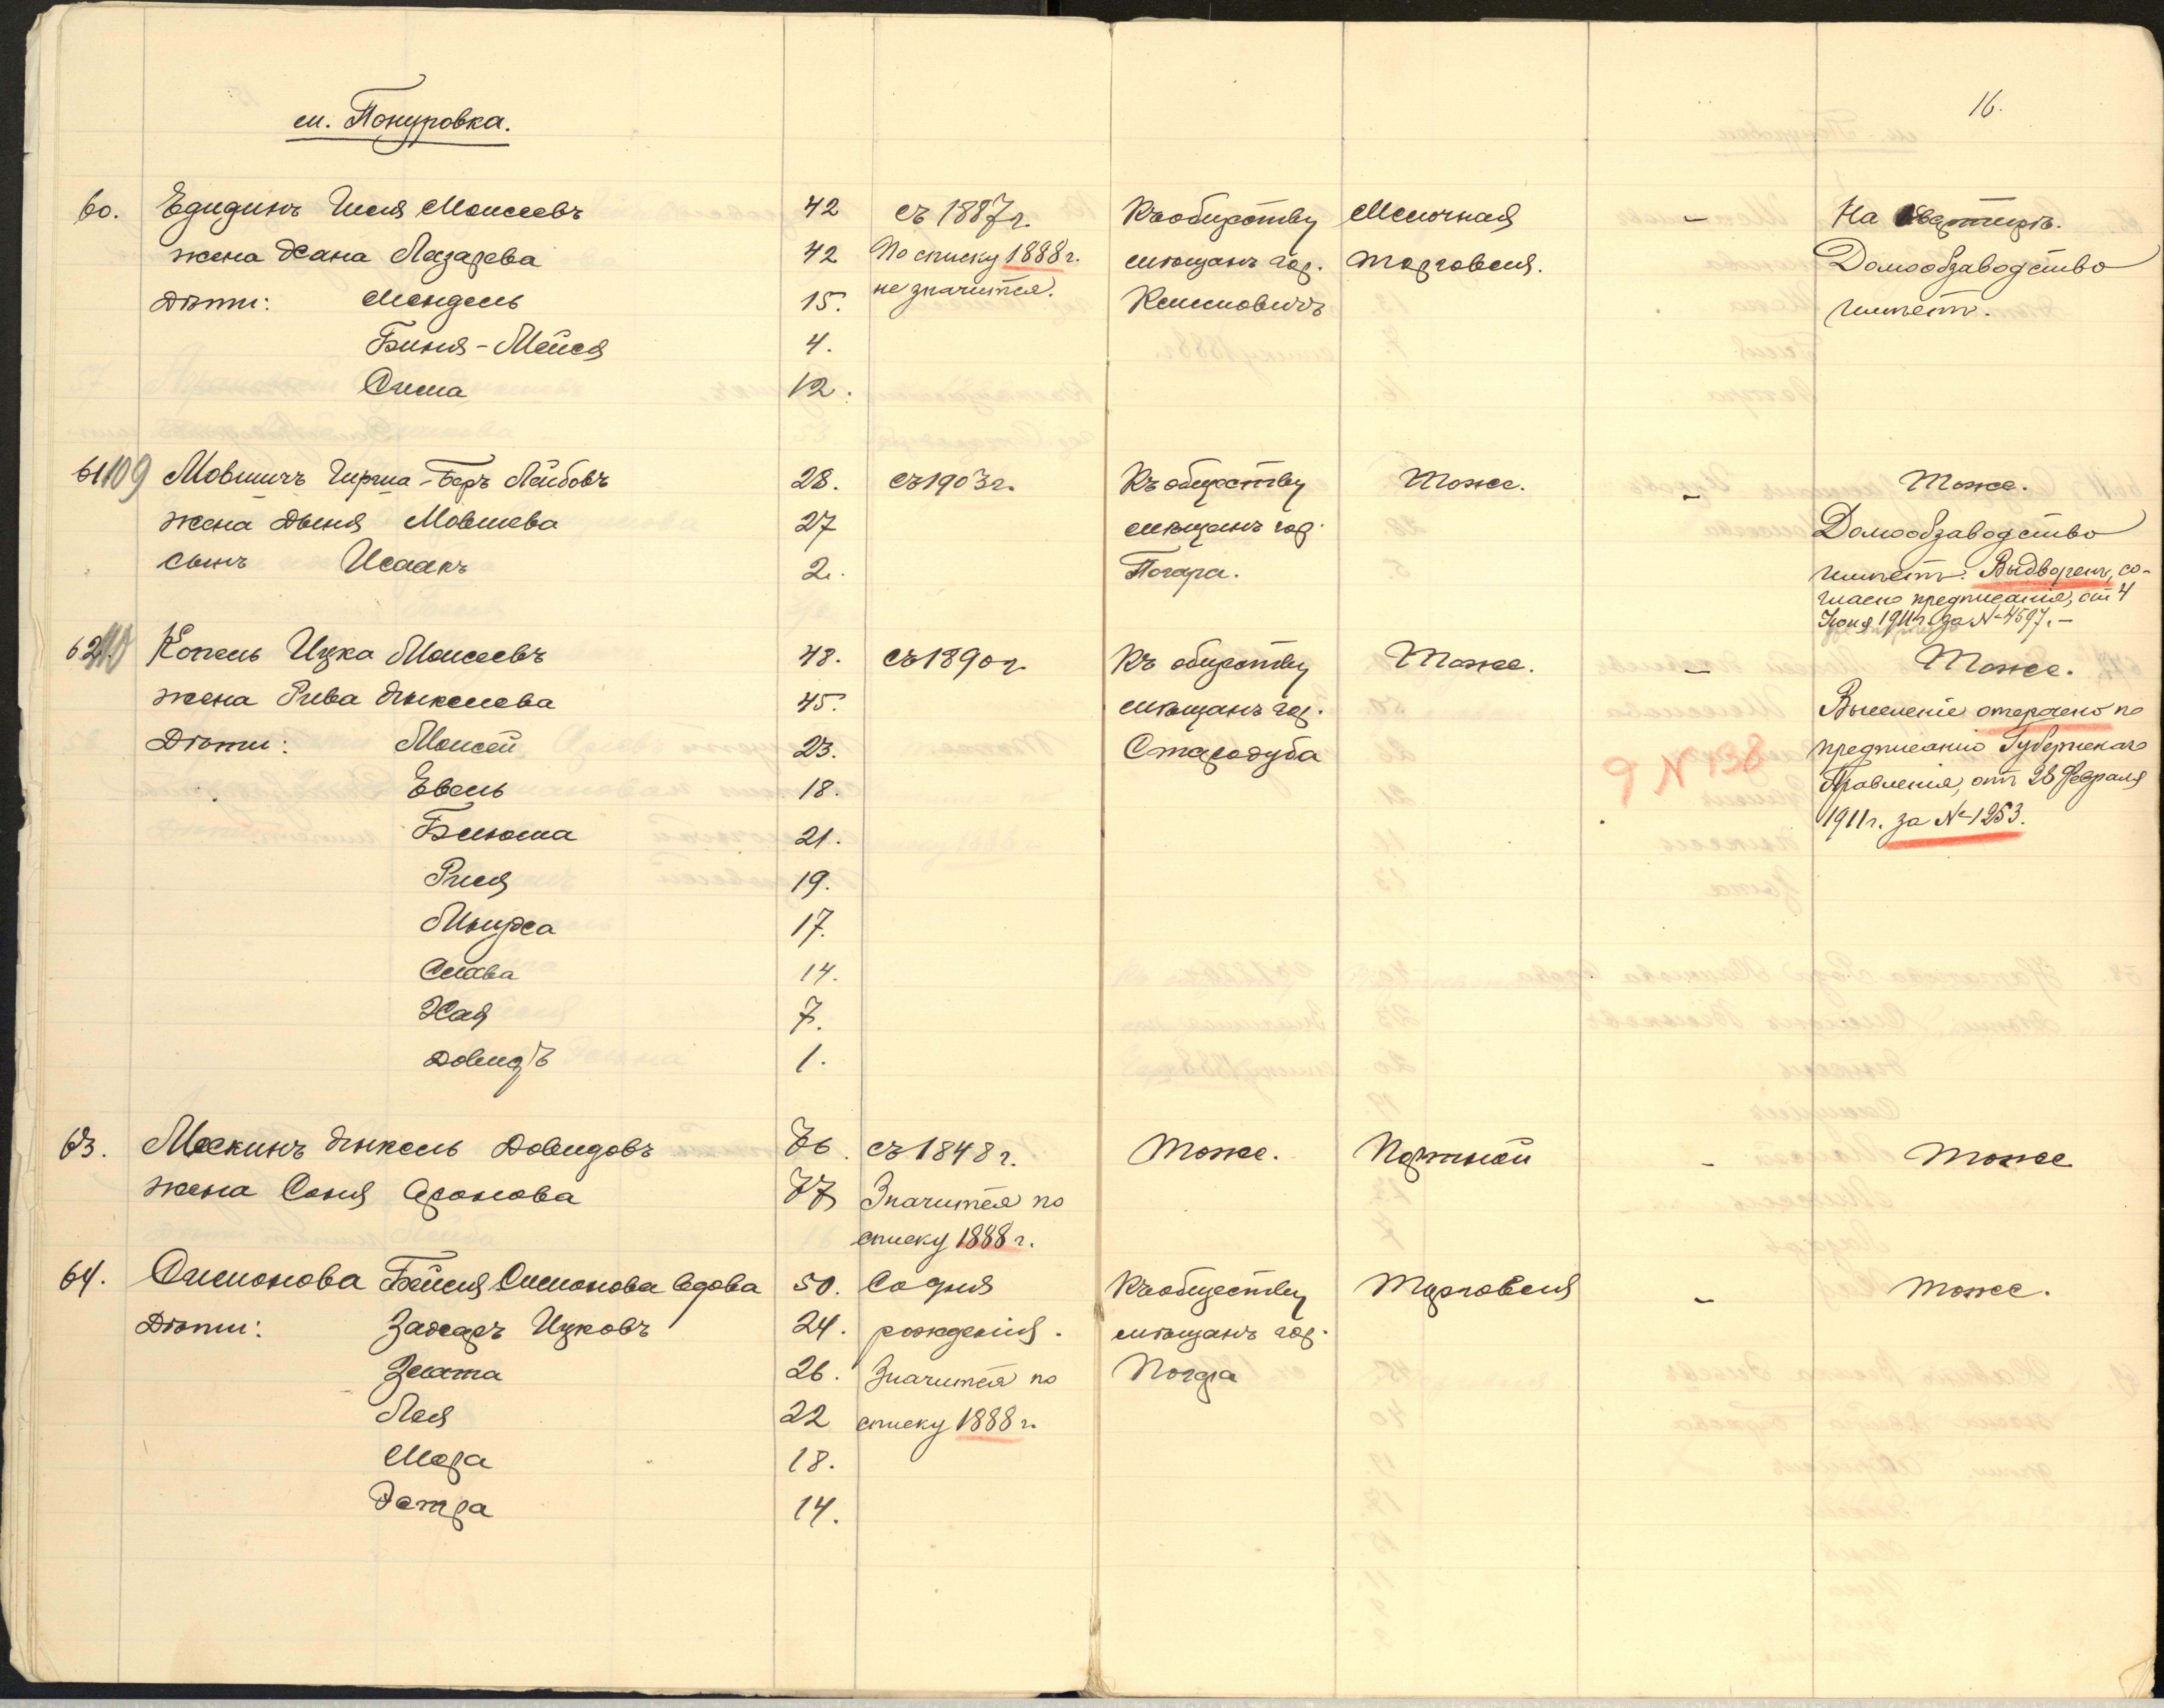 16.
м. Понуровка.
60. Едидинъ Гиля Моисеевъ 42 съ 1887 г. Къ обществу Мелочная – На квартирѣ.
жена Хана Лазарева 42 По списку 1888 г. мѣщанъ гор. торговля. Домообзаводство
Дѣти: Мендель 15. не значится. Климовичъ имѣетъ.
Биня-Мейся 4.
Сима 12.
61 109 Мовшичъ Гирша-Беръ Лейбовъ 28. съ 1903 г. Къ обществу Тоже. – Тоже.
жена Дыня Мовшева 27 мѣщанъ гор. Домообзаводство
сынъ Исаакъ 2. Погара. имѣетъ. Выдворенъ, со-
гласно предписанія, отъ 4
Іюня 1911 г. за № 4597. –
62. 110 Копель Ицка Моисеевъ 48. съ 1890 г. Къ обществу Тоже. – Тоже.
жена Рива Янкелева 45. мѣщанъ гор. Выселеніе отсрочено по
Дѣти: Моисей 23. Стародуба 9 N 138 предписанію Губернскаго
Евель 18. Правленія, отъ 28 Февраля
Блюма 21. 1911 г. за № 1253.
Рися 19.
Мнуха 17.
Слава 14.
Хая 7.
Довидъ 1.
63. Мескинъ Янкель Довидовъ 76. съ 1848 г. Тоже. Портной – Тоже
жена Соня Аронова 77 Значится по
списку 1888 г.
64. Симонова Бейля Симонова вдова 50. Со дня Къ обществу Торговля – Тоже.
Дѣти: Захаръ Ицковъ 24. рожденія. мѣщанъ гор.
Злата 26. Значится по Погара
Лея 22 списку 1888 г.
Мера 18.
Эстра 14.